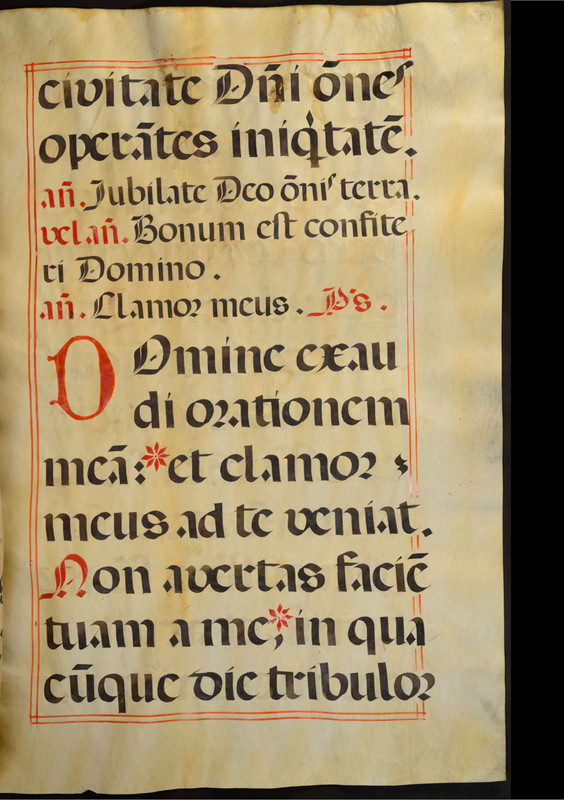 civitate Dñi õnes
operãtes iniq̇tatẽ.
añ. Jubilate Deo õnis terra.
vel añ. Bonum est confite
ri Domino.
añ. Clamor meus. Ps.
DOmine exau
di orationem
meã: * et clamor
meus ad te veniat.
Non avertas faciẽ
tuam a me; * in qua
cũque die tribulor